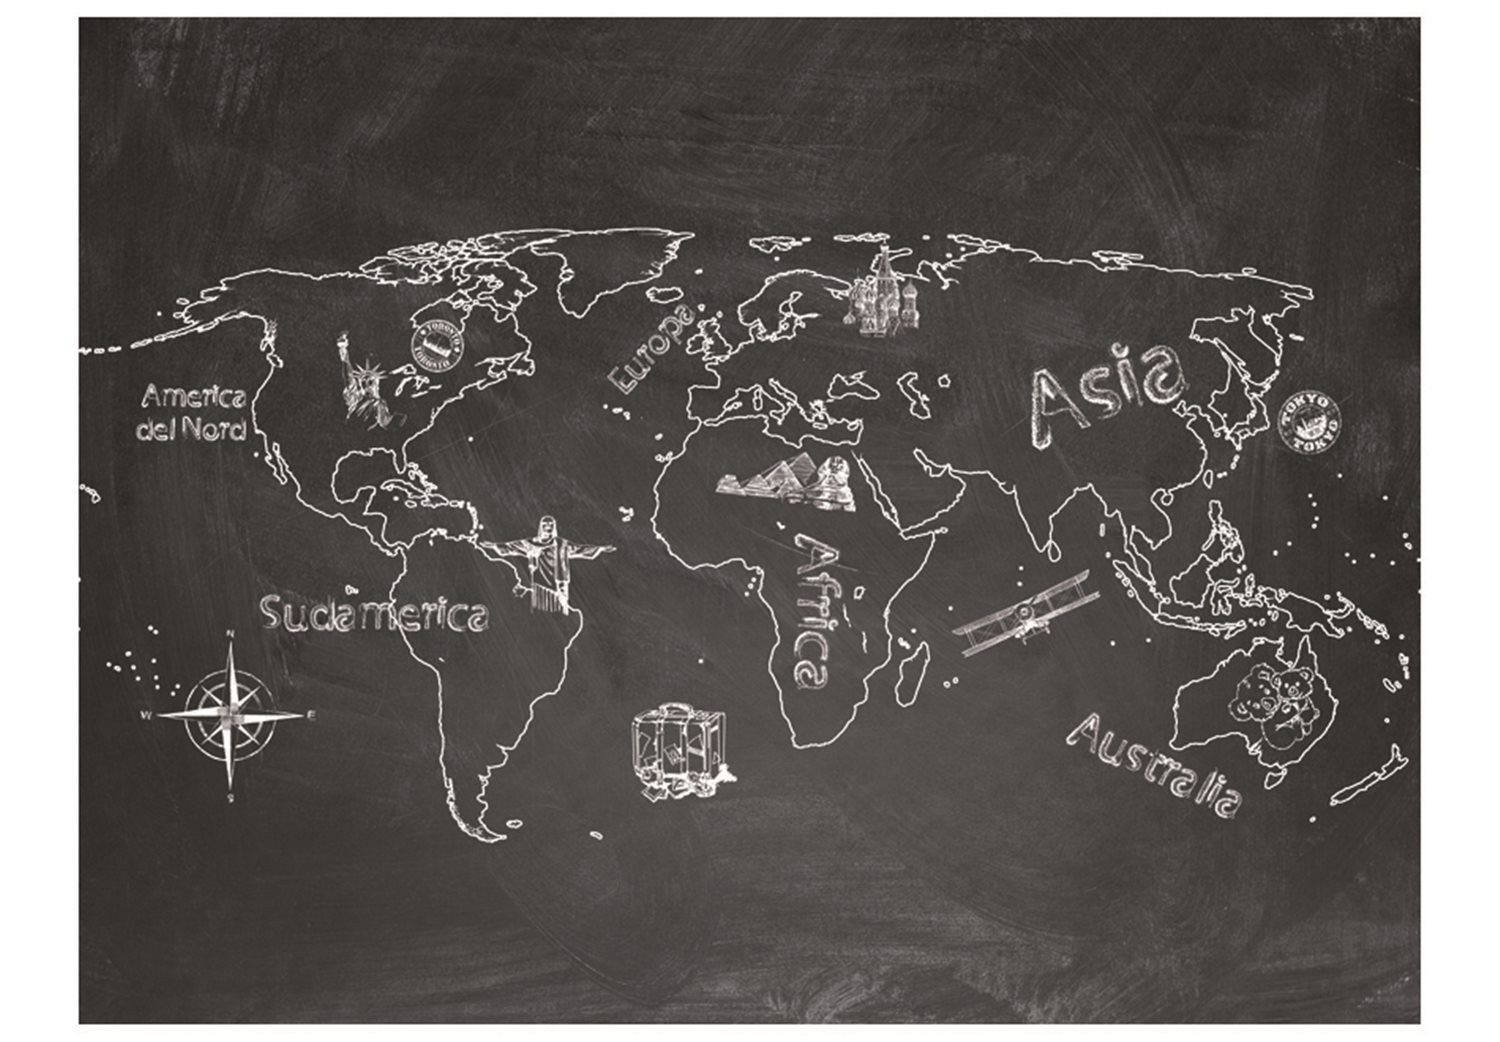 TORONTO
TORONTO
Europa
Asia
America
del Nord
TOKYO
TOKYO
Africa
Sudamerica
N
W
E
S
Australia